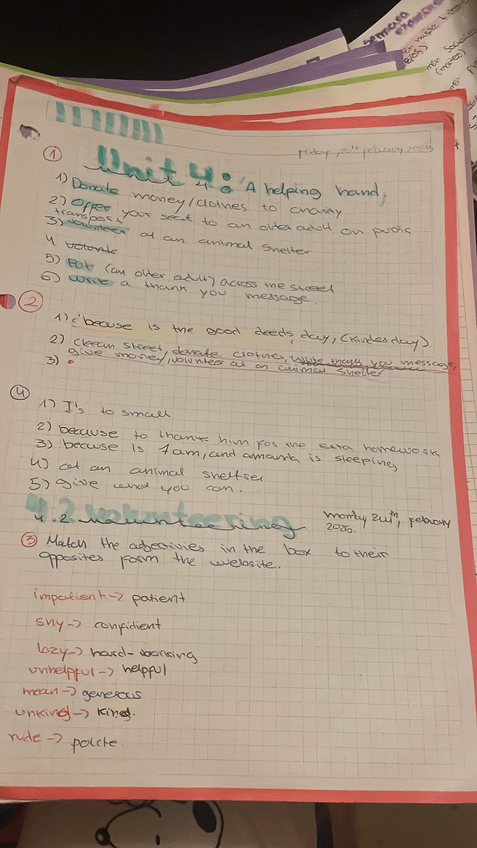 friday, 20th february 2026
① Unit 4: A helping hand,
1) Donate money/clothes to charity
2) Offer your seat to an older adult on public
transport
3) volunteer at an animal shelter
4
5) Put (an older adult) across the street
6) write a thank you message.
② 1) because is the good deeds, day, (
2) Cleean street, donate clothes, write thank you message,
give money/volunteer at an animal shelter
3)
④ 1) I's to small
2) because to thanks him for the homework
3) because is 7am, and amanda is sleeping
4) at an animal sheltser
5) give and you can.
4.2 volunteering
february
2026.
③ Match the adjecivies in the box to their
opposites form the website.
impatient -> patient
shy -> confident
lazy -> hard-working
unhelpful -> helpful
mean -> generous
unkind -> kind.
rude -> polite